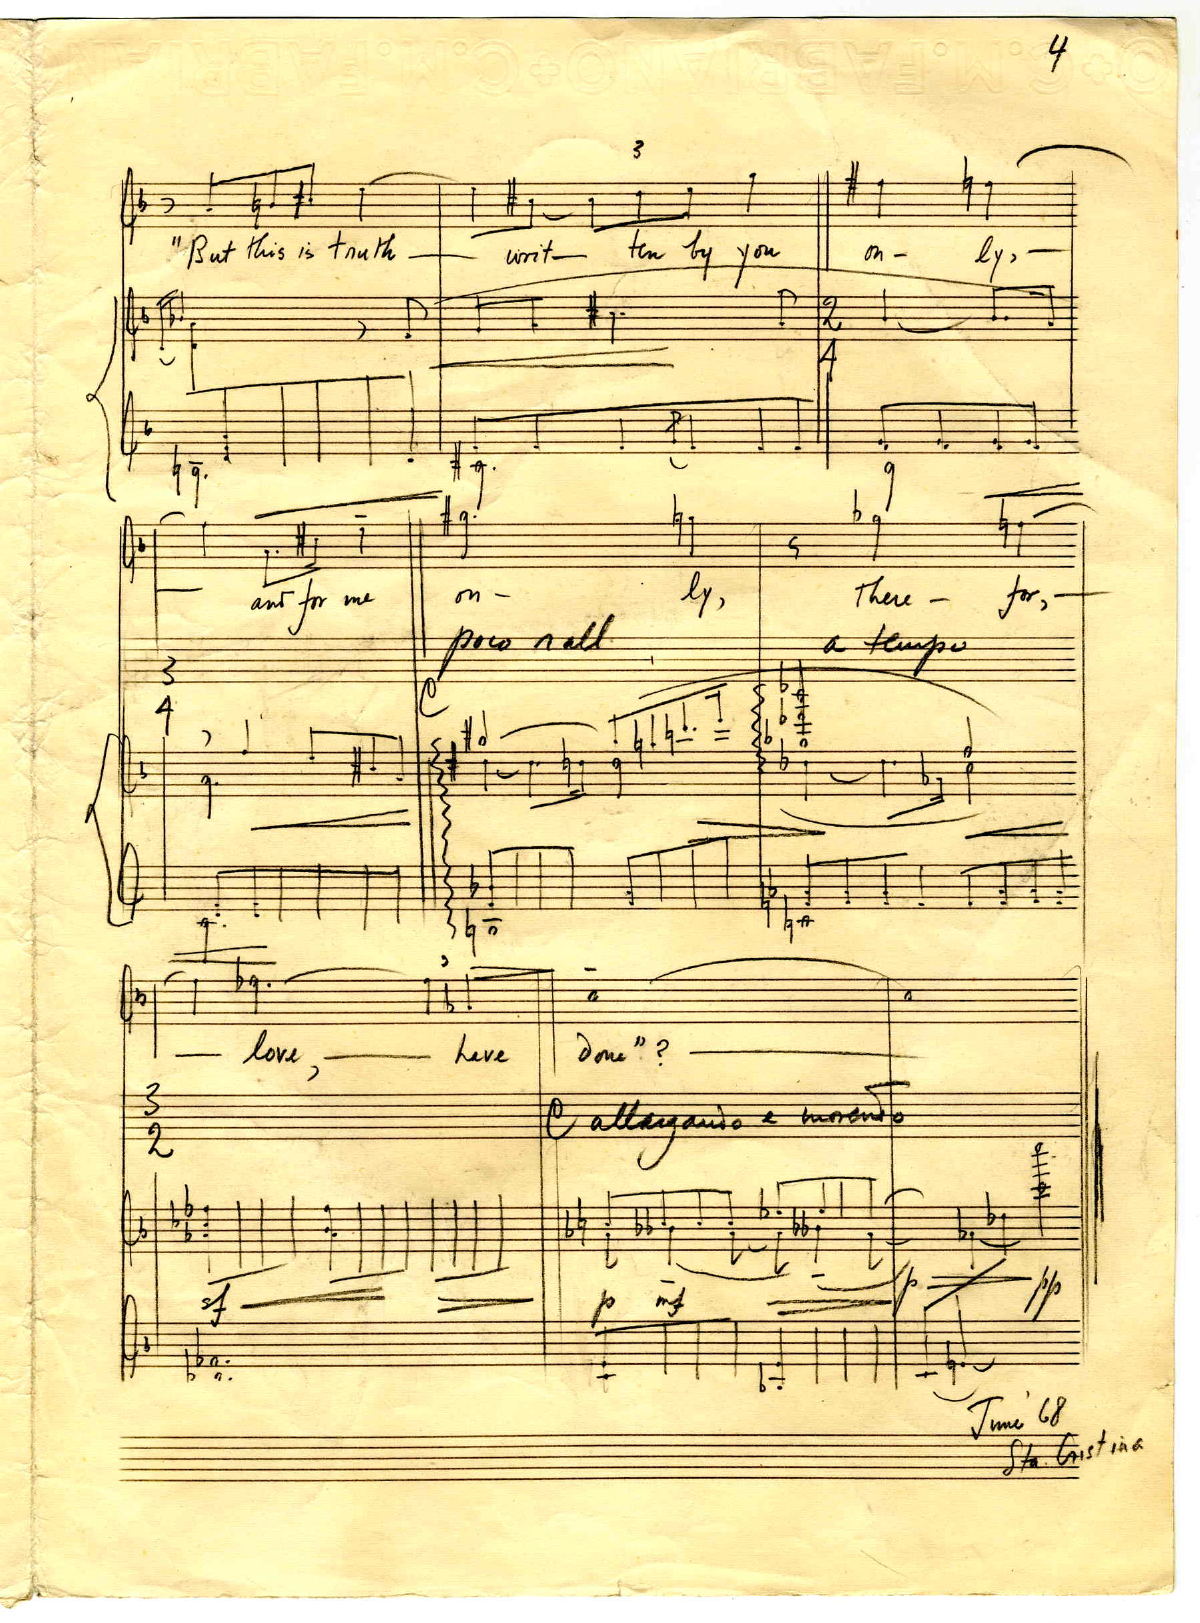 O+C.M.FABRIANO O+C.M.FABRIAN
4
3
"But this is truth — writ — ten by you on - ly, —
2
4
— and for me on - ly, there - for, —
poco rall a tempo
3
4
C
— love, — have done"? —
3
2
C allargando e morendo
sf p mf p pp
June '68
Sta. Cristina